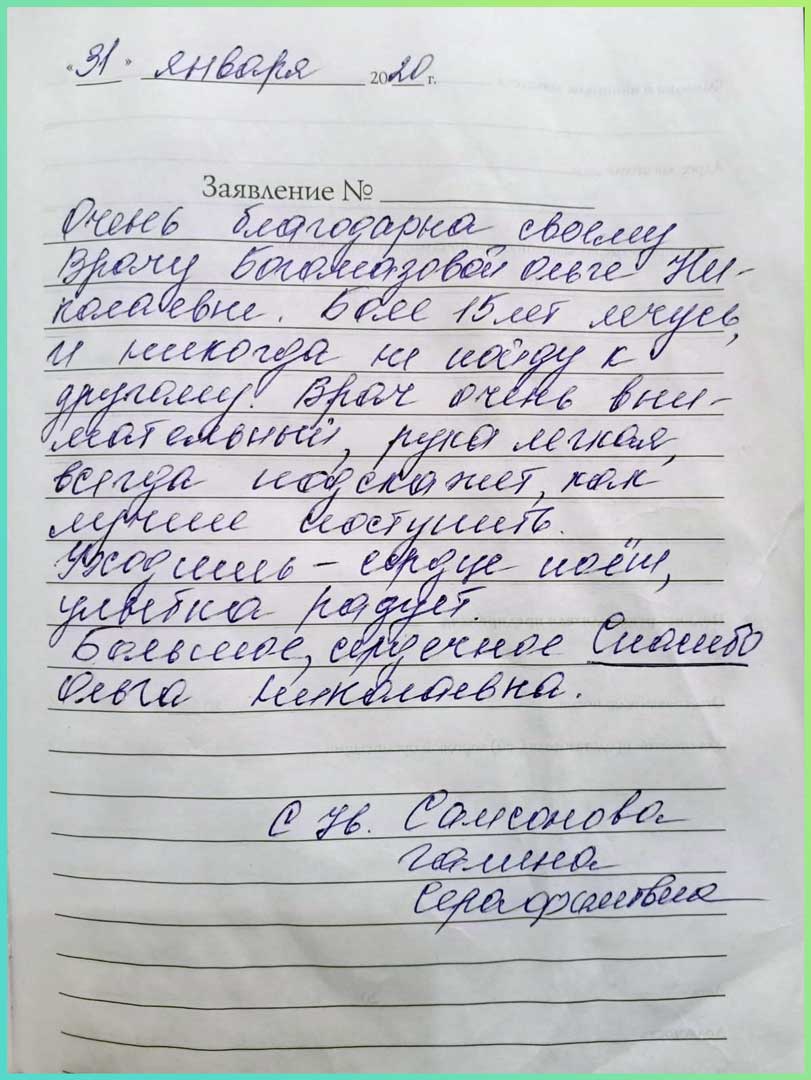 «31» января 2020 г.
Заявление №
Очень благодарна своему
врачу Богомазовой Ольге Ни-
колаевне. Более 15 лет лечусь,
и никогда не пойду к
другому. Врач очень вни-
мательный, рука легкая,
всегда подскажет, как
лучше поступить.
Уходишь – сердце поёт,
улыбка радует
Большое, сердечное Спасибо
Ольга Николаевна.
С ув. Самсонова
Галина
Серафимовна